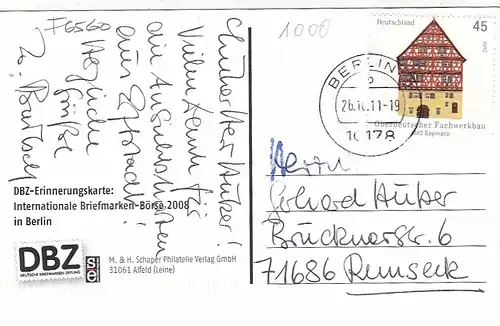 F6560
1000
Lieber Herr Huber!
Vielen Dank für
die
aus
Herzliche
Grüße
Deutschland
45
Oberdeutscher Fachwerkbau
1582 Eppingen
BERLIN
b
26.10.11-19
10178
Herrn
Gerhard Huber
Brucknerstr. 6
71686 Remseck
DBZ-Erinnerungskarte:
Internationale Briefmarken-Börse 2008
in Berlin
DBZ
DEUTSCHE BRIEFMARKEN-ZEITUNG
M. & H. Schaper Philatelie Verlag GmbH
31061 Alfeld (Leine)